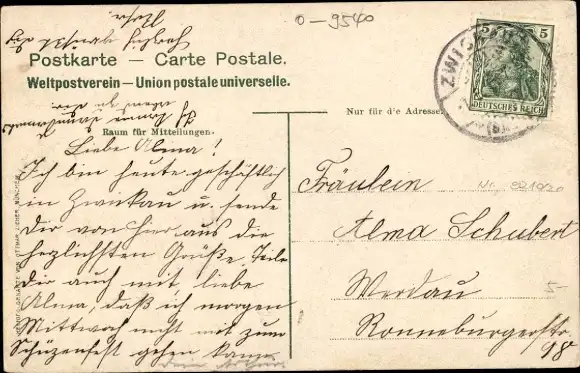 0-9540
Postkarte – Carte Postale.
Weltpostverein – Union postale universelle.
Nur für die Adresse.
Raum für Mitteilungen.
ZWIC
5 5
DEUTSCHES REICH
Liebe Alma!
Ich bin heute geschäftlich
in Zwickau u. sende
Dir von hier aus die
herzlichsten Grüße, Teile
Dir auch mit, liebe
Alma, daß ich morgen
Mittwoch nicht mit zum
Schüzenfest gehen kann
Dein Arthur
Fräulein
Alma Schubert
Werdau
Ronneburgerstr.
98
5-